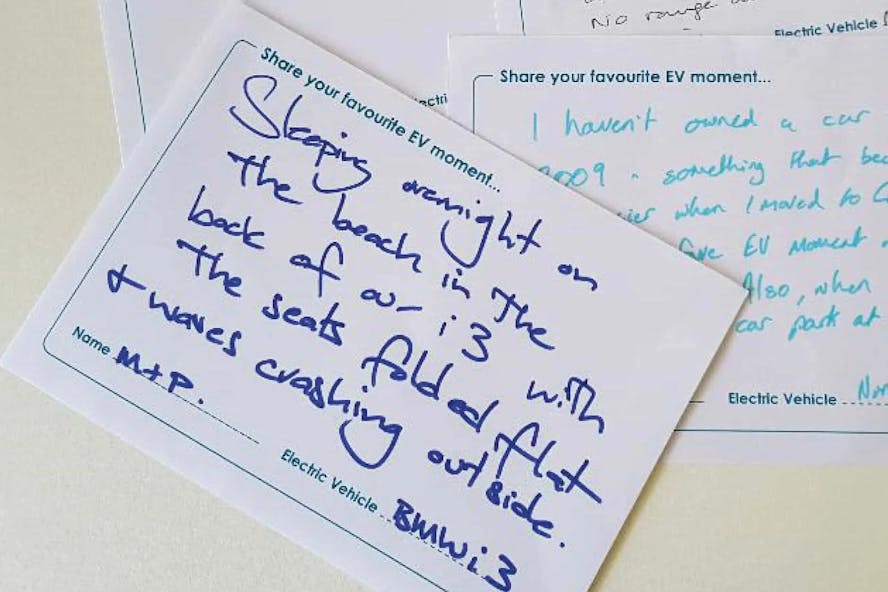 Share your favourite EV moment...
Sleeping overnight on
the beach in the
back of our i3 with
the seats folded flat
+ waves crashing outside.
Name M+P.
Electric Vehicle BMW i3
Share your favourite EV moment...
I haven't owned a car
2009 - something that
when I moved to
EV Moment
Also, when
car park at
Electric Vehicle
No range
Electric Vehicle